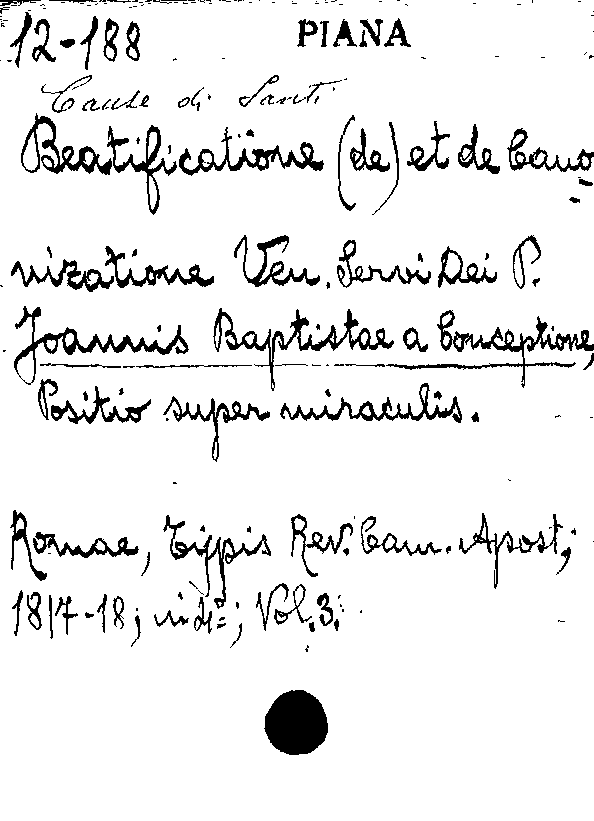 12-188 PIANA
Cause di Santi
Beatificatione (de) et de Cano
=
nizatione Ven. Servi Dei P.
Joannis Baptistae a Conceptione,
Positio super miraculis.
Romae, Tÿppis Rev. Cam. Apost;
1817-18; in 4º; Vol. 3.